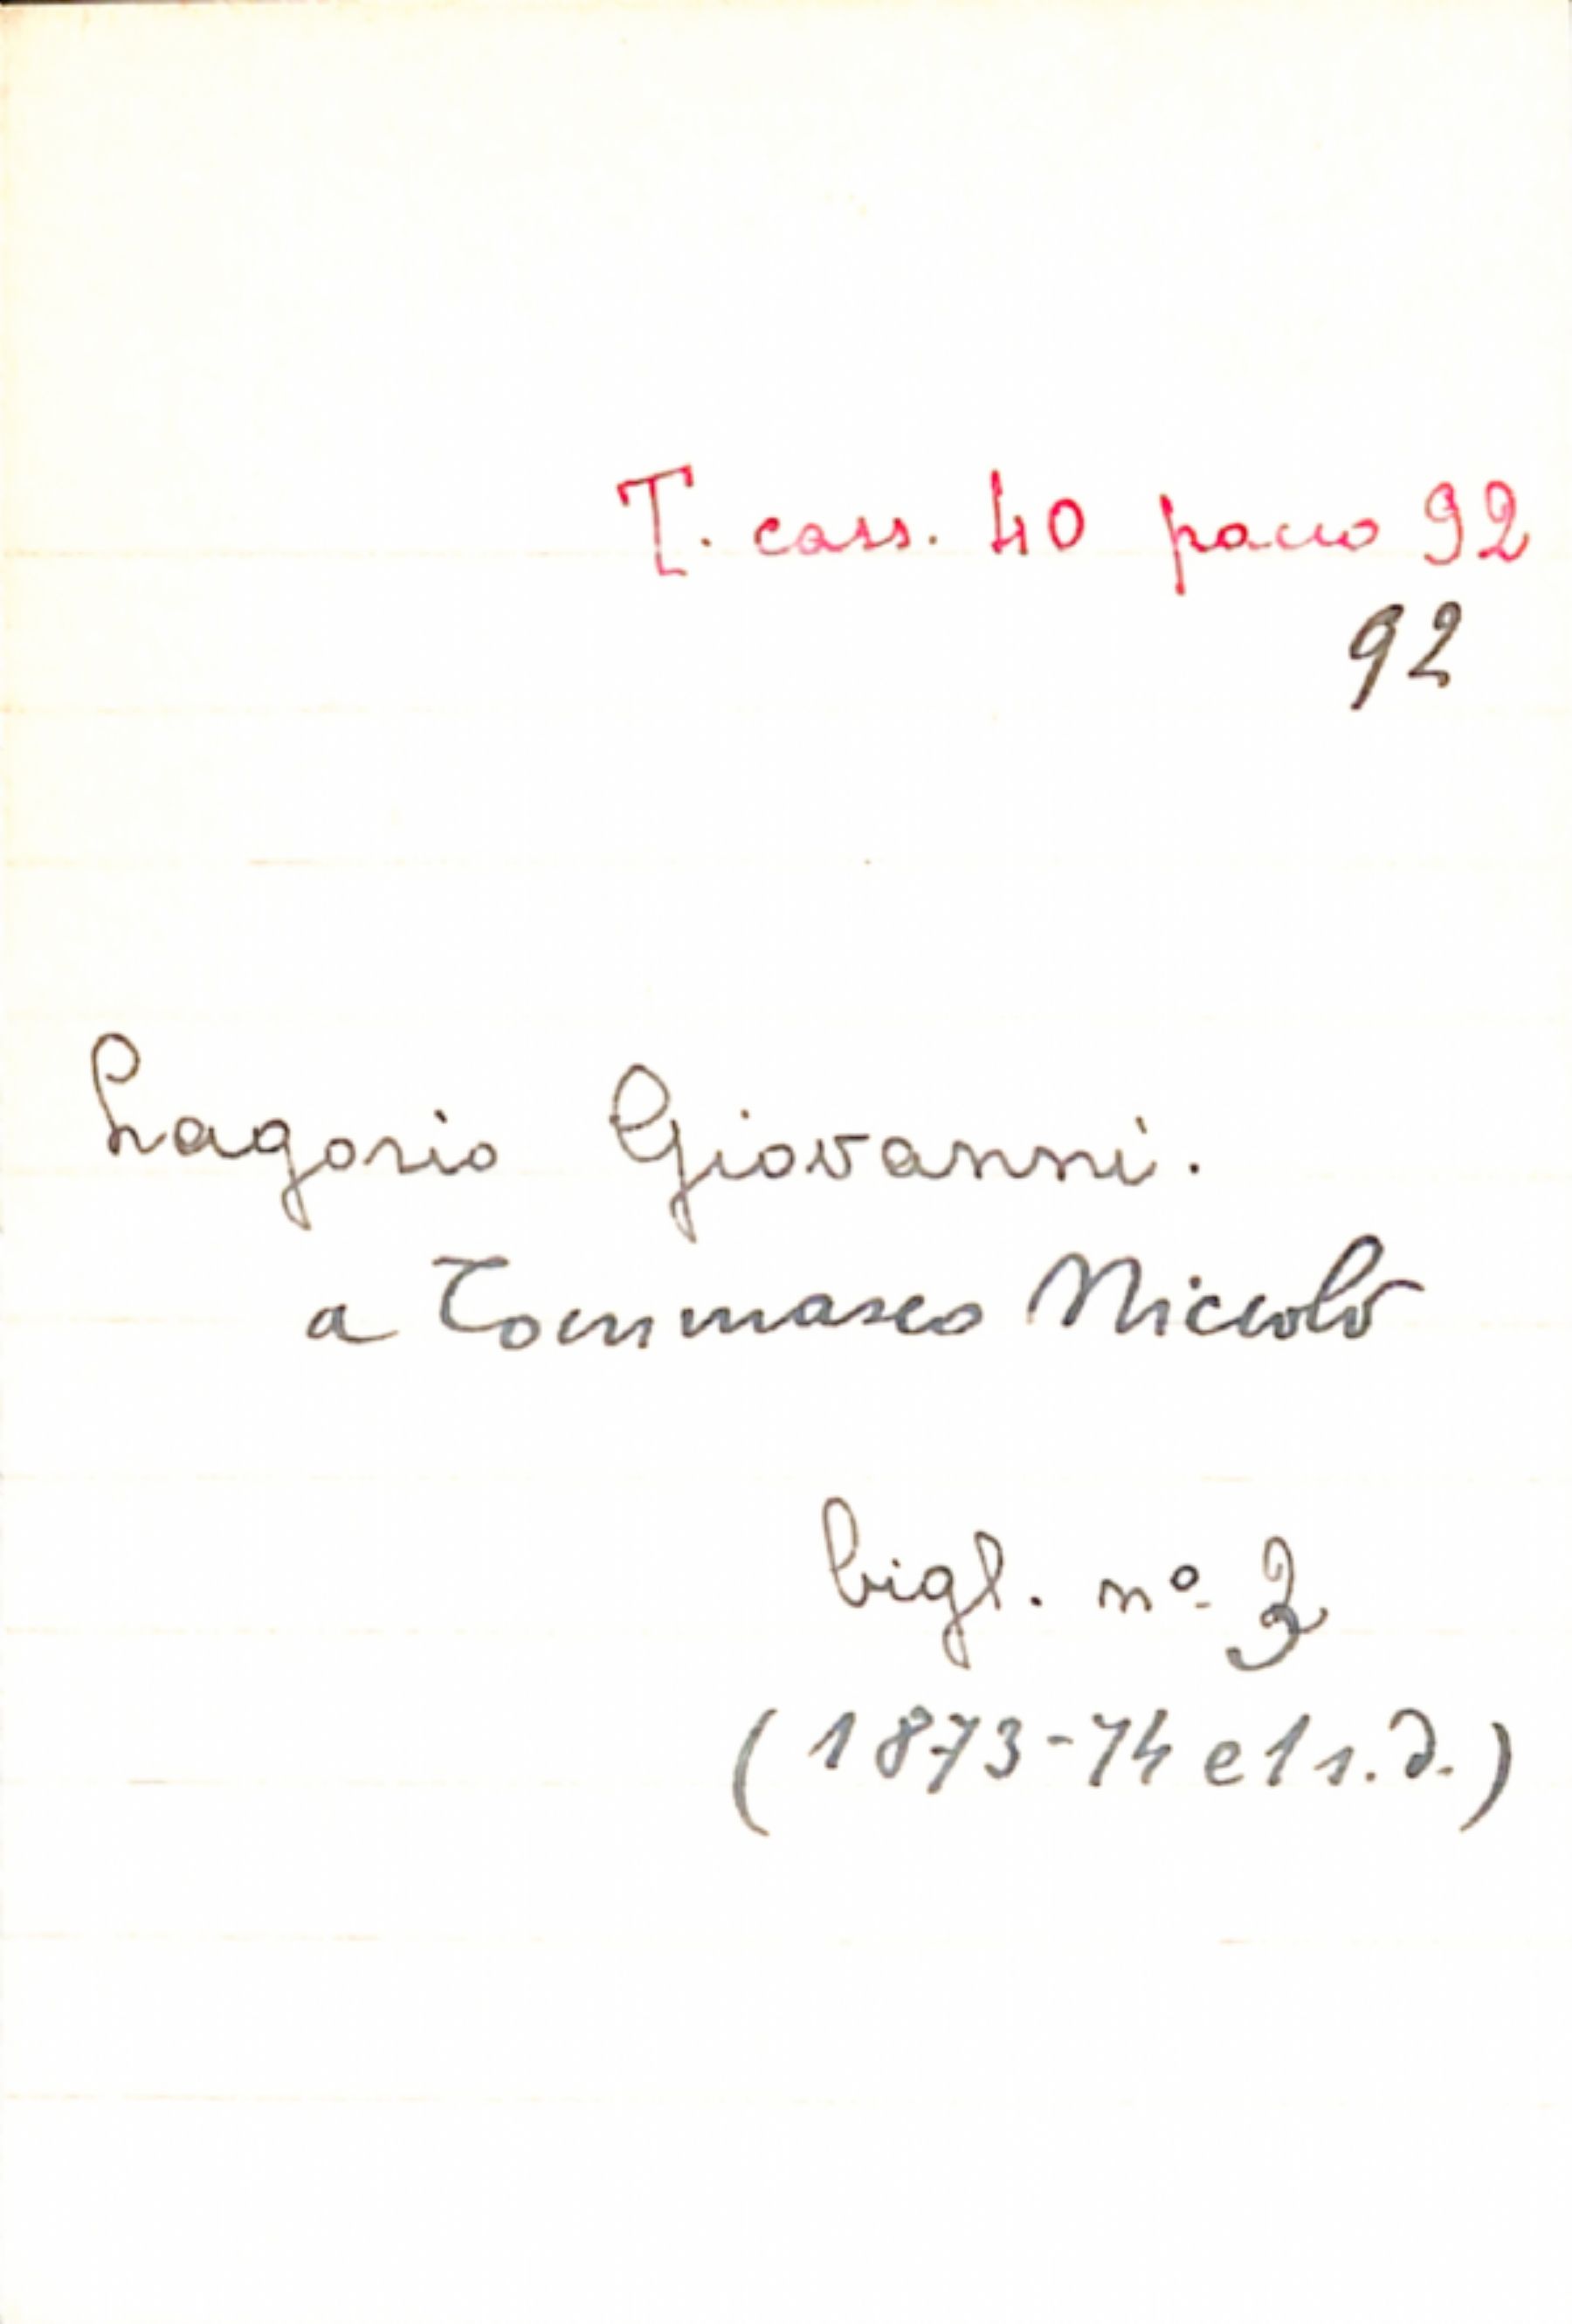 T. cass. 40 pacco 92
92
Lagorio Giovanni.
a Tommaseo Niccolò
bigl. nº 3
(1873-74 e 1 s.d.)